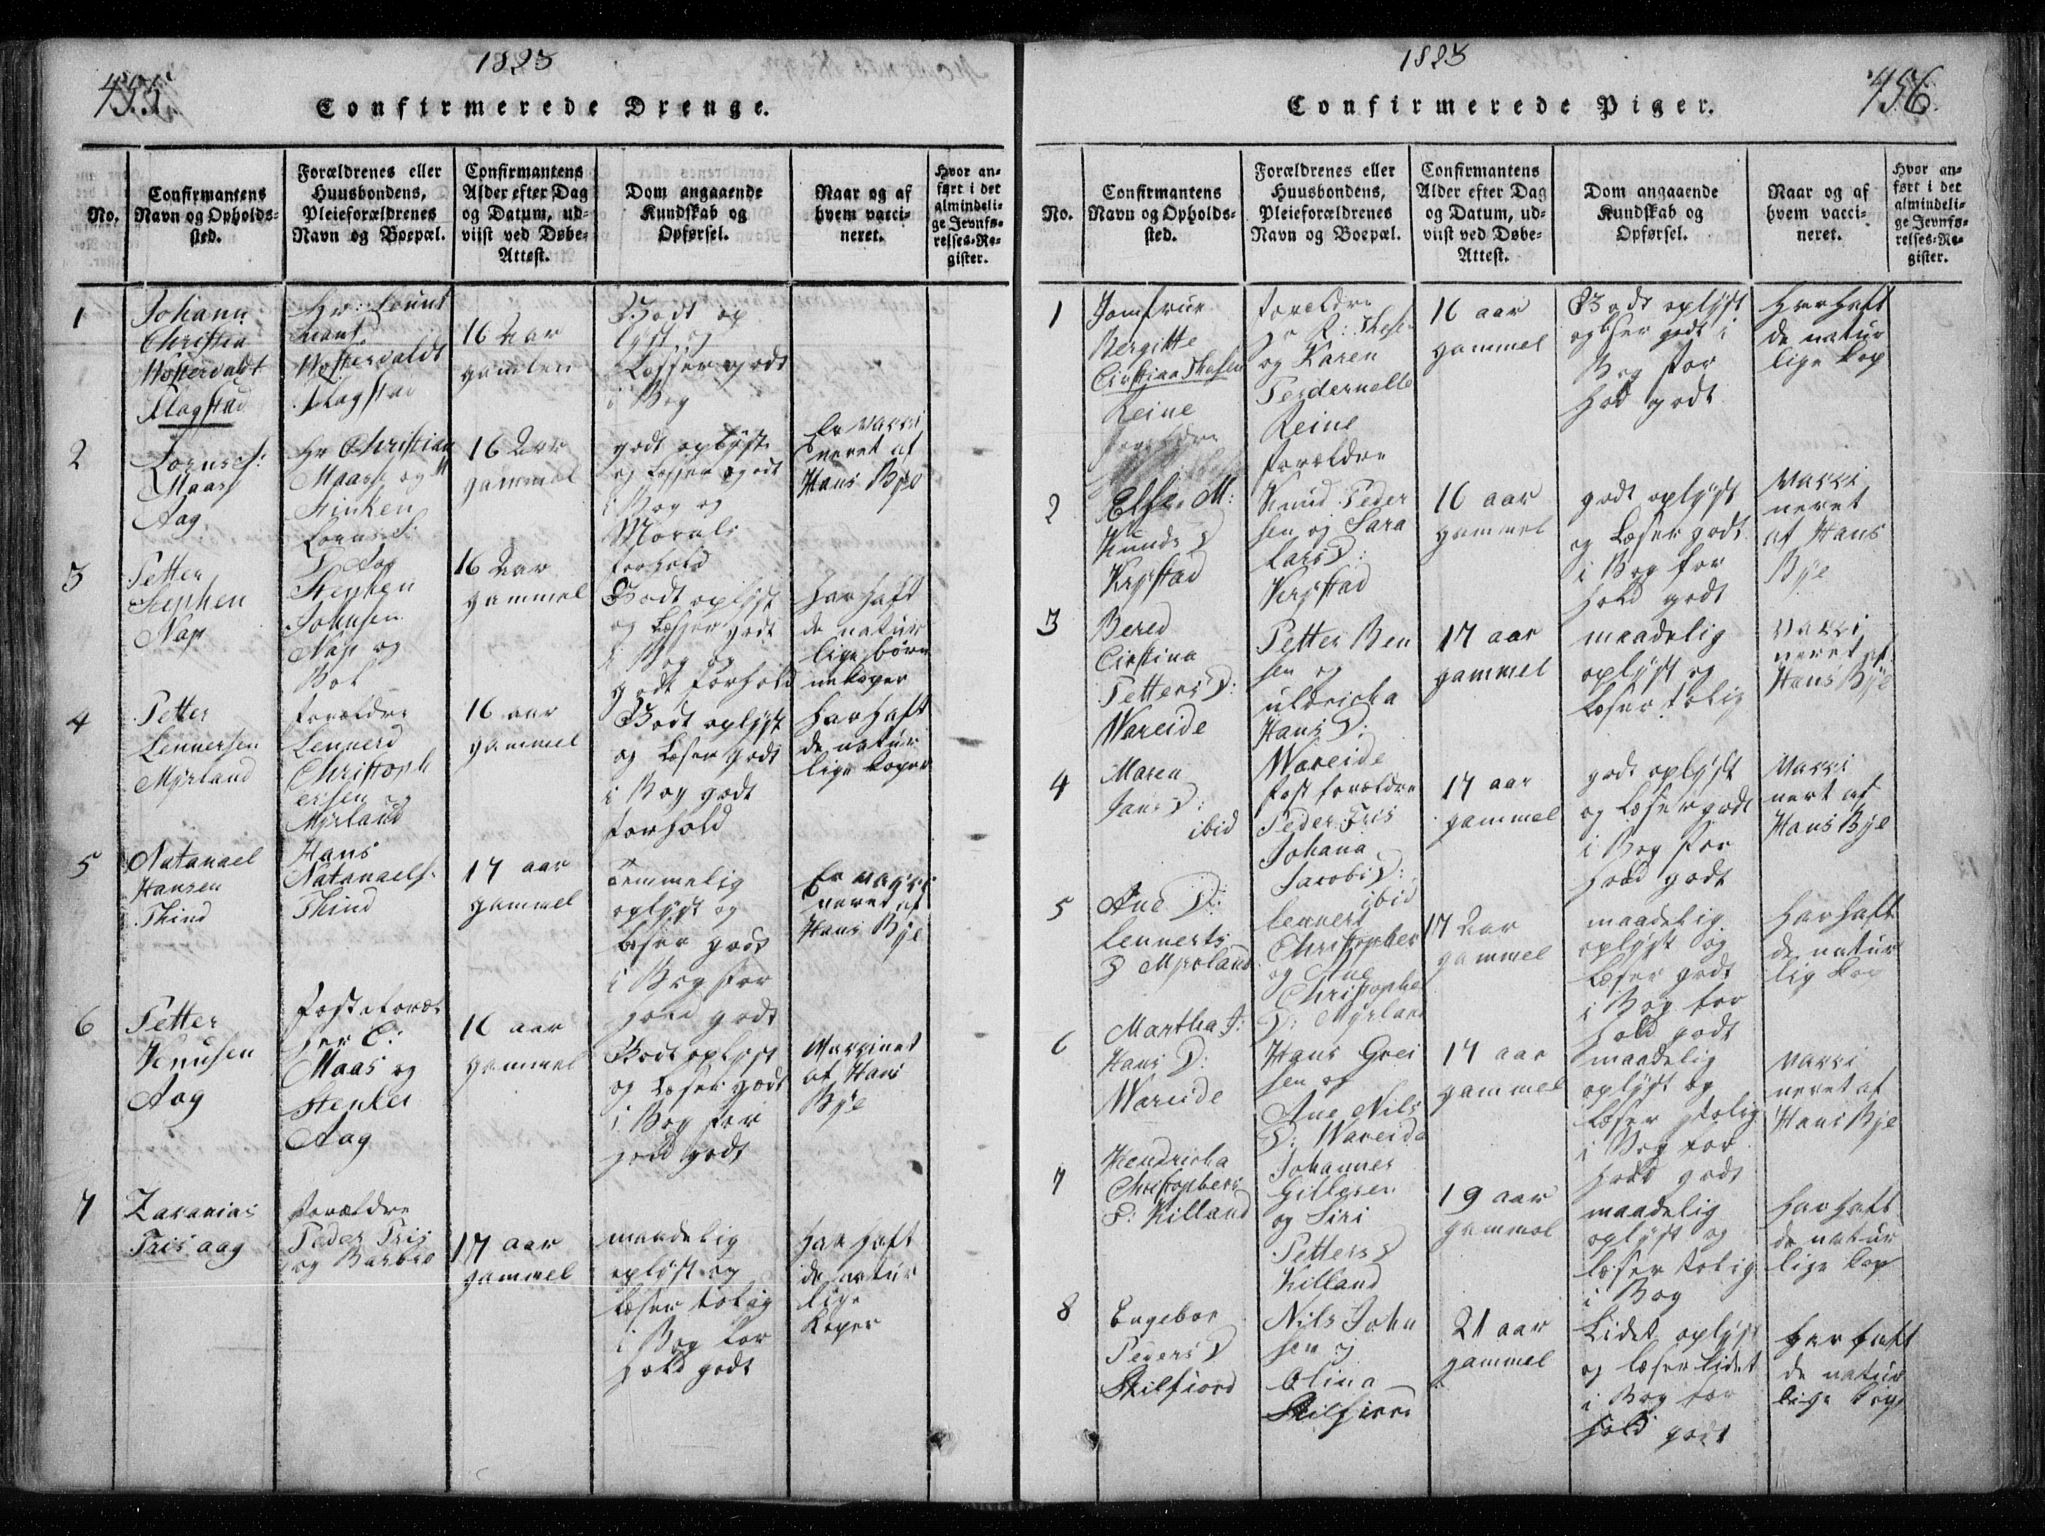 455.
1823
Confirmerede Drenge.
No.
Confirmantens
Navn og Opholds-
sted.
Forældrenes eller
Huusbondens,
Pleieforældrenes
Navn og Boepæl.
Confirmantens
Alder efter Dag
og Datum, ud-
viist ved Døbe-
Attest.
Dom angaaende
Kundskab og
Opførsel.
Naar og af
hvem vacci-
neret.
Hvor an-
ført i det
almindeli-
ge Jevnfø-
relses-Re-
gister.
1
Johann
Christen
Flagstad
Flagstad
16 Aar
gamlen
Godt op
lyst og
Læsser godt
i Bog
2
Maas
Aag
Hr Christian
Maass og
16 Aar
gammel
godt oplyst
og Læsser godt
i Bog og
Morals
forhold
Er vacci
neret af
Hans Bye
3
Petter
Stephen
Nap
Stephen
Johnsen
Nap og
16 Aar
gammel
Godt oplyst
og Læsser godt
i Bog og
godt forhold
Har haft
de natur
lige børn
nekoper
4
Petter
Lennersen
Myrland
forældre
Lennerd
Christoph
ersen og
Myrland
16 aar
gammel
Godt oplyst
og Læser godt
i Bog godt
forhold
Har haft
de natur
lige koper
5
Natanael
Hansen
Thind
Hans
Natanaels:
Thind
17 aar
gammel
Temmelig
oplyst og
læser godt
i Bog for
hold godt
Er vacci
neret af
Hans Bye
6
Petter
Knusen
Aag
Maas og
Aag
16 aar
gammel
Godt oplyst
og Læser godt
i Bog for
hold godt
Vaccinet
af Hans
Bye
7
Zacarias
Fris aag
forældre
Peder Fris
og Barbro
17 aar
gammel
maadelig
oplyst og
læser tolig
i Bog for
hold godt
Har haft
de natur
lige
Koper
1823
456.
Confirmerede Piger.
No.
Confirmantens
Navn og Opholds-
sted.
Forældrenes eller
Huusbondens,
Pleieforældrenes
Navn og Boepæl.
Confirmantens
Alder efter Dag
og Datum, ud-
viist ved Døbe-
Attest.
Dom angaaende
Kundskab og
Opførsel.
Naar og af
hvem vacci-
neret.
Hvor an-
ført i det
almindeli-
ge Jevnfø-
relses-Re-
gister.
1
Jomfrue
Bergitte
Reine
foreldre
og Karen
Reine
16 aar
gammel
Godt oplyst
og læser godt i
Bog for
hold godt
Har Haft
de natur
lige kop
2
Else M:
Knuds D
Krystad
forældre
Knud Peder
sen og Sara
Lars D:
Krystad
16 aar
gammel
godt oplyst
og Læser godt
i Bog for
hold godt
vacci
neret
af Hans
Bye
3
Bered
Cirstina
Petters D:
Wareide
Petter Ben
sen og
uldricha
Hans D:
Wareide
17 aar
gammel
maadelig
oplyst og
læser tolig
vacci
neret af
Hans Bye
4
Maren
Jans D:
ibid
fost forældre
Peder Fris
Johana
Jacobs D:
ibid
17 aar
gammel
godt oplyst
og læser godt
i Bog for
hold godt
vacci
nert af
Hans Bye
5
Ane D:
Lennerts
D Myrland
Lennert
Christopher
og Ane
Christophe
D: Myrland
17 Aar
gammel
maadelig
oplyst og
Læser godt
i Bog for
hold godt
Har haft
de natur
lig kop
6
Martha J:
Hans D:
Wareide
Hans Grei
sen og
Ane Nils
D: Wareide
17 aar
gammel
maadelig
oplyst og
læser tolig
i Bog for
hold godt
vacci
neret af
Hans Bye
7
Hendricha
Christophers
D: Killand
Johannes
Gillesen
og Siri
Petters D
Killand
19 aar
gammel
maadelig
oplyst og
læser tolig
i Bog
Har haft
de natur
lige kop
8
Engebor
Peders D
Skilfiord
Nils John
sen og
Olina
Skilfiord
21 aar
gammel
Lidet oplyst
og læser lidet
i Bog for
hold godt
Har haft
de natur
lige kop